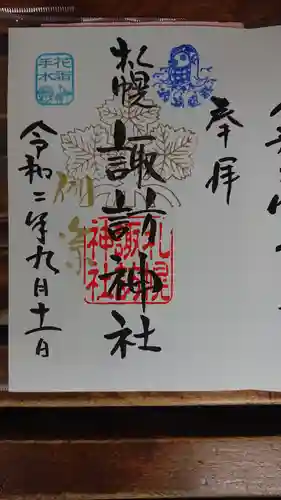 奉拝
札幌
諏訪神社
札幌
諏訪
神社
例祭
花詣
手水
令和二年九月十一日